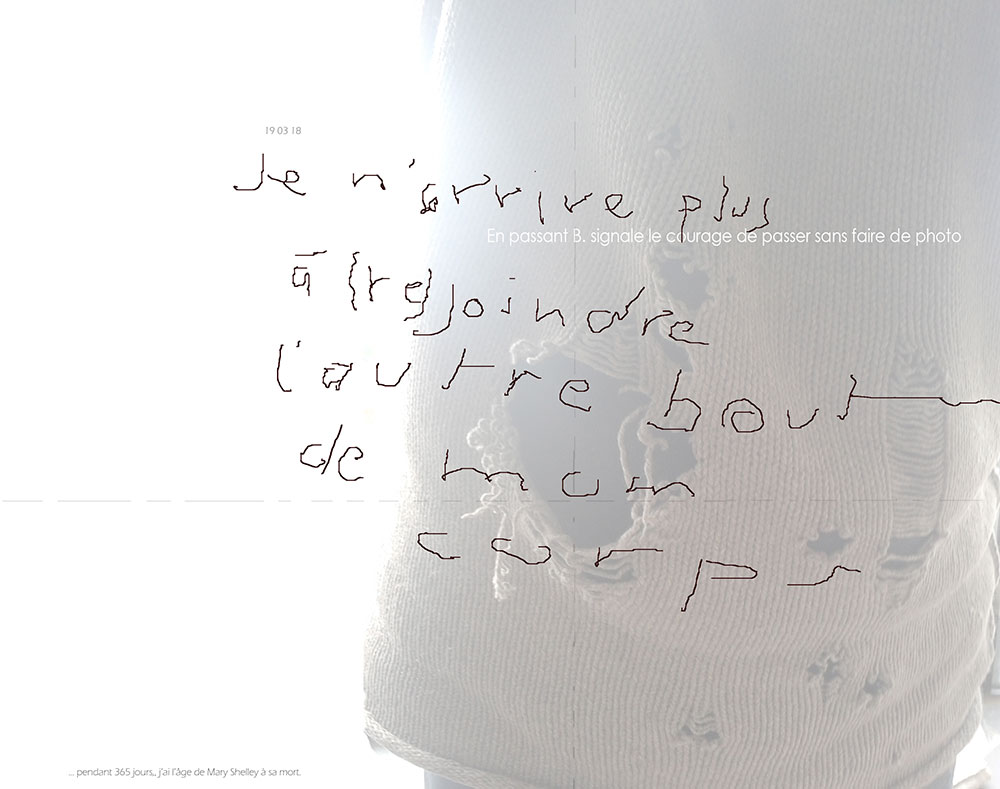 19 03 18
Je n'arrive plus
En passant B. signale le courage de passer sans faire de photo
à (re)joindre
l'autre bout
de mon
corps
... pendant 365 jours,, j'ai l'âge de Mary Shelley à sa mort.